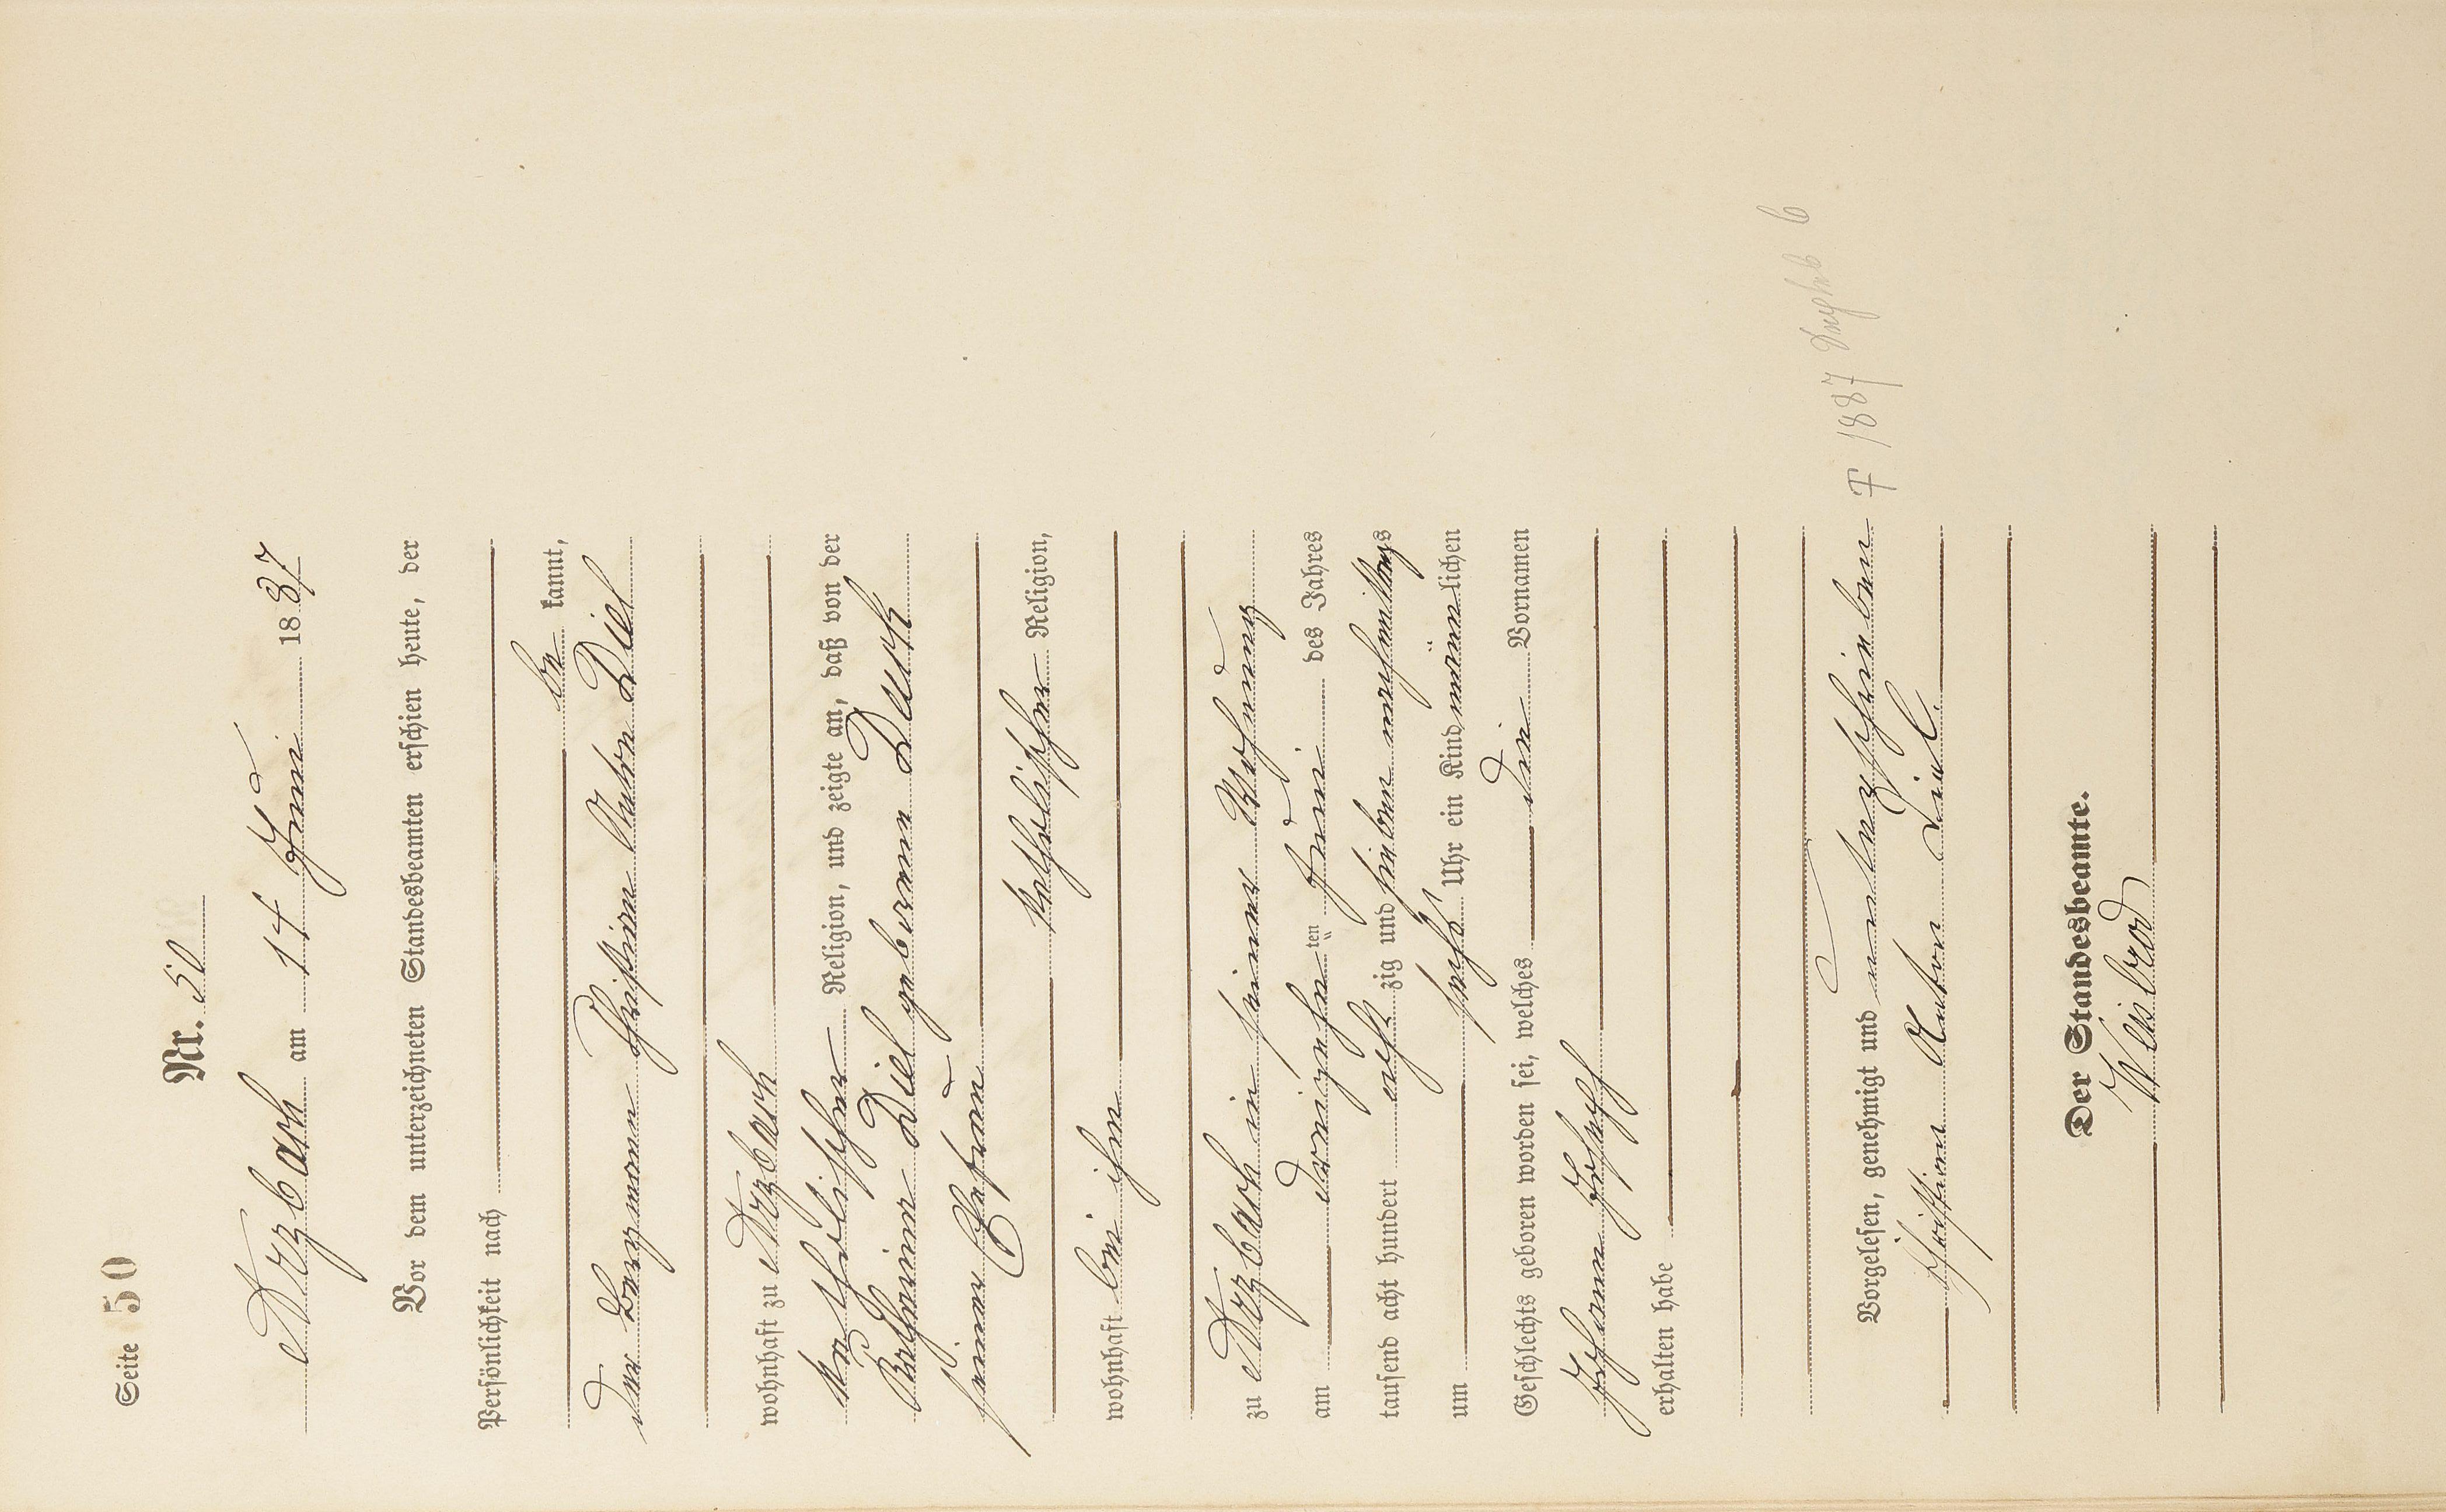 Seite 50
Nr. 50
Arzbach am 14 Juni 1887
Vor dem unterzeichneten Standesbeamten erschien heute, der
Persönlichkeit nach
be kannt,
der Bergmann Christian Anton Diel
wohnhaft zu Arzbach
katholischer Religion, und zeigte an, daß von der
Katharina Diel geborenen
seiner Ehefrau
katholischer Religion,
wohnhaft bei ihm
zu Arzbach in seiner Wohnung
am dreizehn ten Juni des Jahres
tausend acht hundert acht zig und sieben nachmittags
um sechs Uhr ein Kind männ lichen
Geschlechts geboren worden sei, welches den Vornamen
Johann Joseph
erhalten habe
Vorgelesen, genehmigt und unterschrieben
† 1887
Christian Anton Diel.
Der Standesbeamte.
Weisbrod